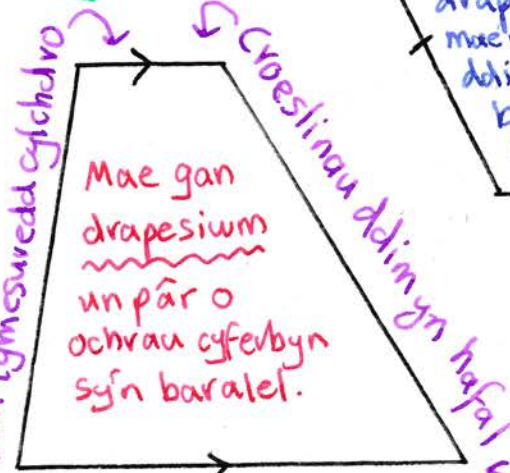 ymesuredd cylchdro
Croeslinau ddim yn hafal
Mae gan
drapesiwm
un pâr o
ochrau cyferbyn
sy'n baralel.
drap
mae
ddi
b